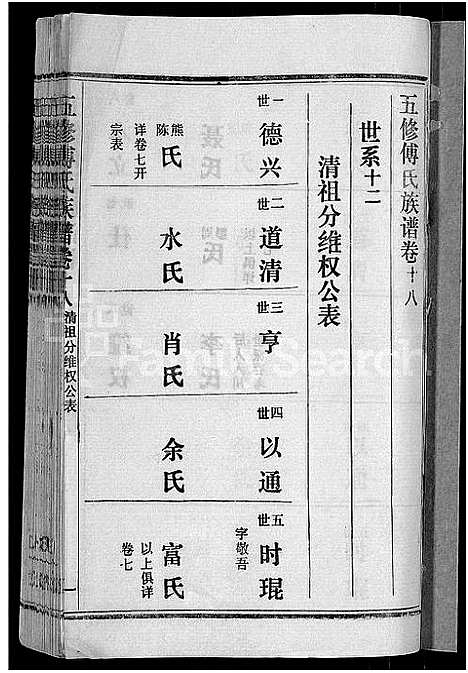 五修傅氏族谱卷十八
世系十二
清祖分维权公表
一世 德兴
熊陈氏
详卷七开宗表
二世 道清
水氏
三世 亨
肖氏
四世 以通
余氏
五世 时琨
字敬吾
富氏
以上俱详卷七
五修傅氏族谱卷十八 清祖分维权公表 一
FamilySearch